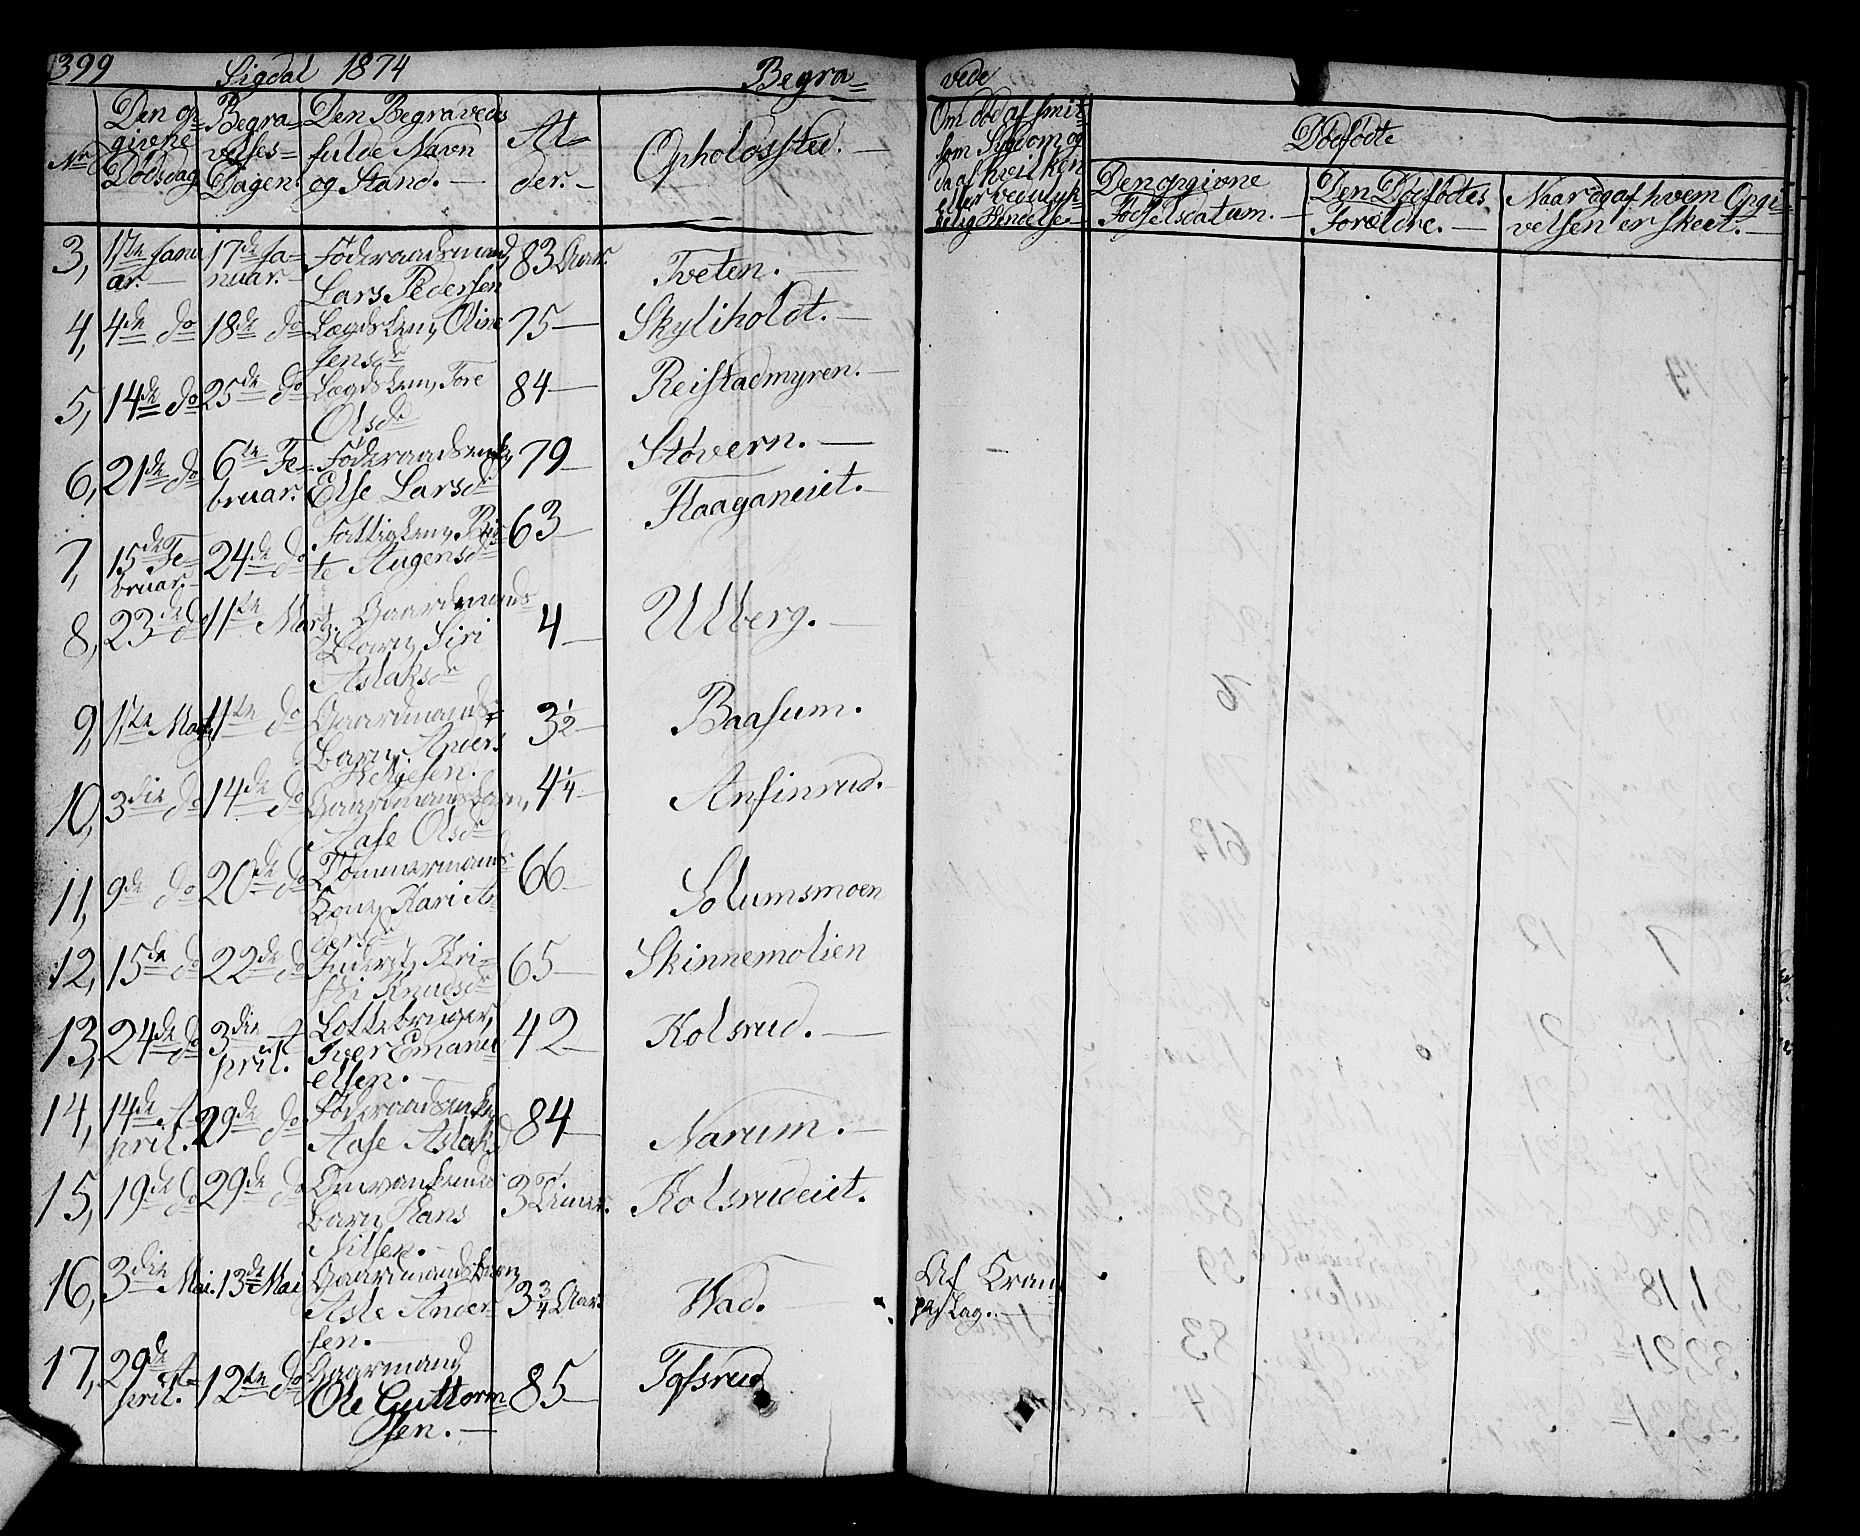 399 Sigdal 1874 Begra= vede
Nr. Den op= givne Dødsdag
Begra= velses= Dagen.
Den Begravedes fulde Navn og Stand. —
Al= der. —
Opholdssted. —
Om død af smit= som Sygdom og da af hvilken eller ved ulyk= kelig Hændelse —
Dødfødte
Den opgivne Fødselsdatum. —
Den Dødfødtes Forældre. —
Naar og af hvem Opgi= velsen er skeet. —
3, Janu ar. — 17de Ja= nuar. — Føderaadsmand Lars Pedersen 83 Aar. Tveten. —
4, 4de do 18de do Lægdslem, Oline Jensdr 75 — Skyliholdt. —
5, 14de do 25de do Lægdslem, Tore Olsdr 84 — Reistadmyren. —
6, 21de do 6te Fe= bruar. Føderaadsenke, Else Larsdr 79 — Støvern. —
7, 15de Fe= bruar. 24de do Fattiglem, te Augensdr 63 — Haaganeiet. —
8, 23de do 11te Marts. Gaardmands Barn, Siri Aslaksdr 4 — Ulberg. —
9, 1ste Mart 11te do Gaardmands= barn. Anders Helgesen. 3½ — Baasum.
10, 3die do 14de do Gaardmandsbarn, Aase Olsdr 4¼ — Anfinrud.
11, 9de do 20de do Tømmermands Kone, Kari An dersdr 66 — Solumsmoen
12, 15de do 22de do Inderst, Kri= sti Knudsdr 65 — Skinnemolien
13, 24de do 3die A= pril. Lottebruger, Iver Emanu elsen. — 42 — Kolsrud. —
14, 14de A= pril. 29de do Føderaadsenke, Aase Aslaksd 84 — Narum. —
15, 19de do 29de do barn, Hans Nilsen. — 3 Kolsrudeiet.
16, 3die Mai. 13de Mai Gaardmandsbarn, Asle Ander= sen. — 3¾ Aar. Vad. Af Kram= peslag. —
17, 29de A= pril. 12te do Gaarmand, Ole Guttorm= sen. — 85 —